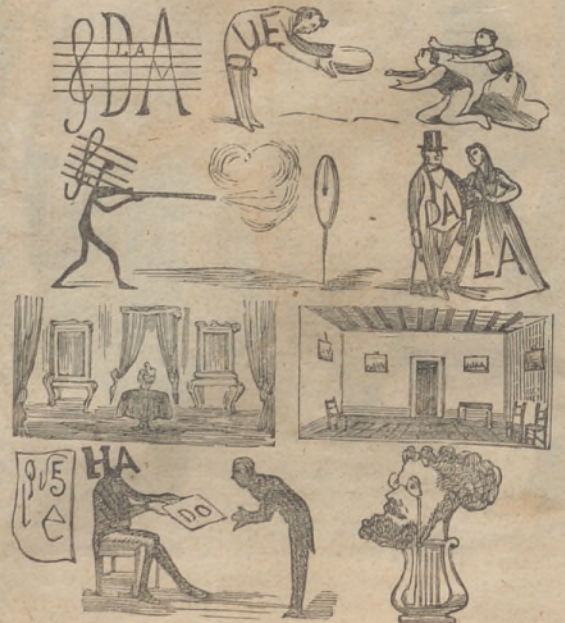 DA
LA
UE
DA
LA
QUE
SE
HA
DO